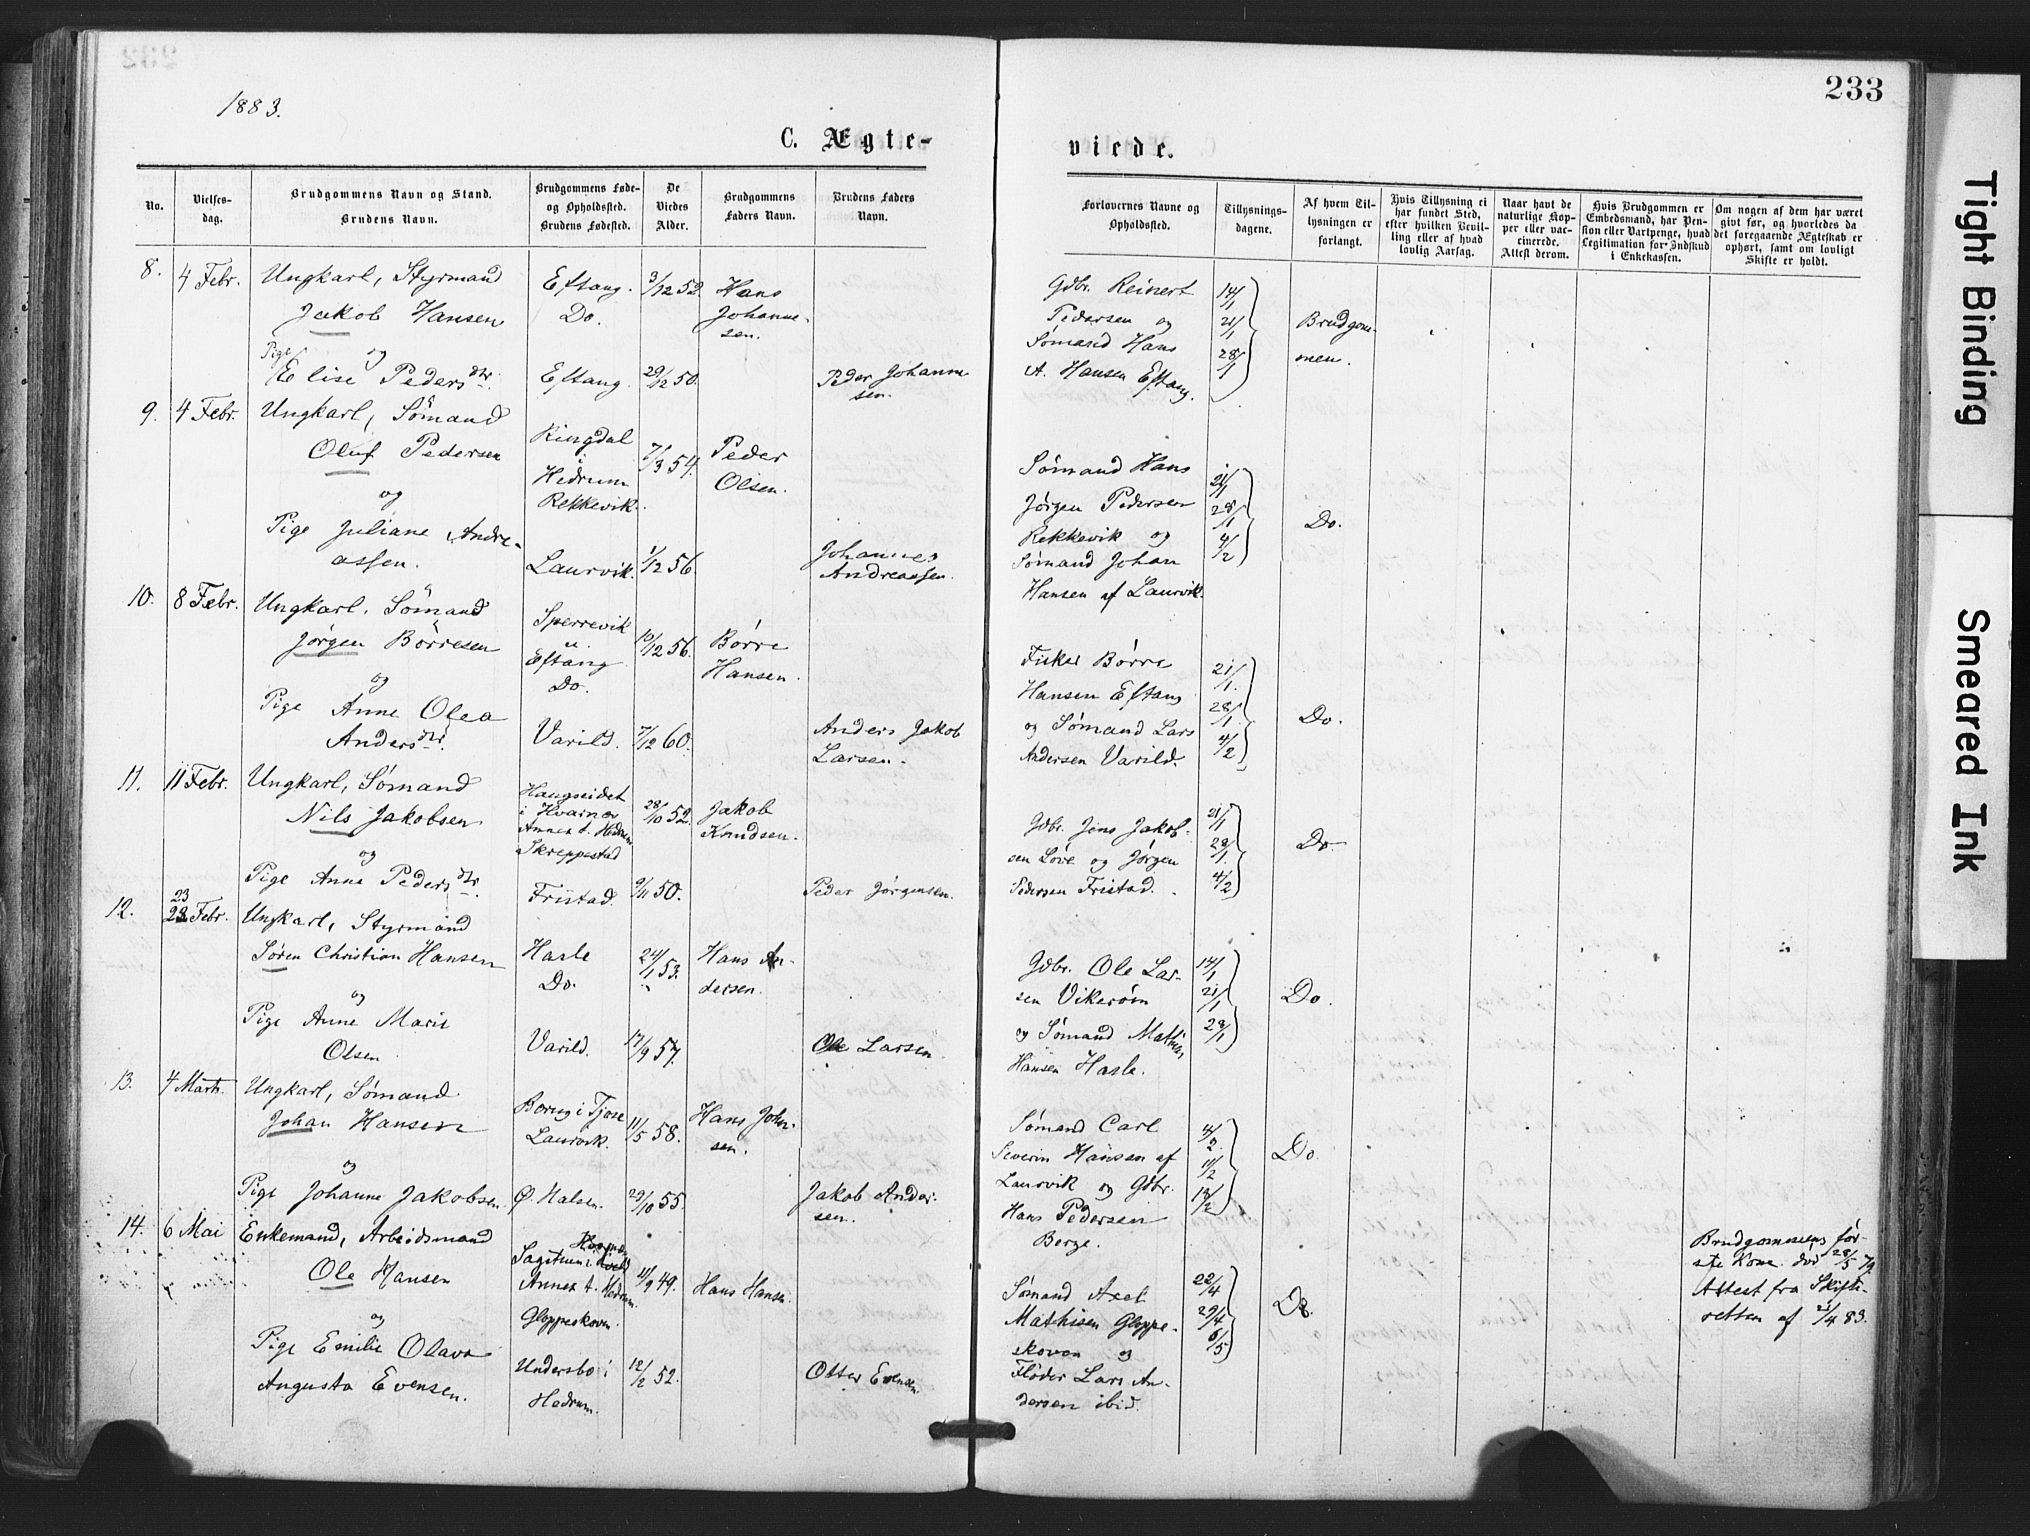 1883.
233
C. Ægte-
viede.
No.
Vielses-
dag.
Brudgommens Navn og Stand.
Brudens Navn.
Brudgommens Føde-
og Opholdssted.
Brudens Fødested.
De
Viedes
Alder.
Brudgommens
Faders Navn.
Brudens Faders
Navn.
Forlovernes Navne og
Opholdssted.
Tillysnings-
dagene.
Af hvem Til-
lysningen er
forlangt.
Hvis Tillysning ei
har fundet Sted,
efter hvilken Bevil-
ling eller af hvad
lovlig Aarsag.
Naar havt de
naturlige Kop-
per eller vac-
cinerede.
Attest derom.
Hvis Brudgommen er
Embedsmand, har Pen-
sion eller Vartpenge, hvad
Legitimation for Indskud
i Enkekassen.
Om nogen af dem har været
givt før, og hvorledes da
det foregaaende Ægteskab er
ophørt, samt om lovligt
Skifte er holdt.
8.
4 Febr.
Ungkarl, Styrmand
Jakob Hansen
og
Pige
Elise Pedersdtr.
Eftang.
Do.
Eftang.
3/12 52
29/12 50.
Hans
Johanne-
sen.
Peder Johanne
sen.
Gdbr. Reinert
Pedersen og
Sømand Hans
A. Hansen Eftang.
14/1
21/1
28/1
Brudgom-
men.
9.
4 Febr.
Ungkarl, Sømand
Oluf Pedersen
og
Pige Juliane Andre-
assen.
Ringdal
i
Hedrum
Rekkevik.
Laurvik.
7/3 54.
1/12 56.
Peder
Olsen.
Johannes
Andreassen.
Sømand Hans
Jørgen Pedersen
Rekkevik og
Sømand Johan
Hansen af Laurvik.
21/1
28/1
4/2
Do.
10.
8 Febr.
Ungkarl, Sømand
Jørgen Börresen
og
Pige Anne Olea
Andersdtr.
Sperrevik
Eftang
Do.
Varild.
10/12 56.
7/12 60.
Børre
Hansen.
Anders Jakob
Larsen.
Fisker Børre
Hansen Eftang
og Sømand Lars
Andersen Varild.
21/1.
28/1.
4/2
Do.
11.
11 Febr.
Ungkarl, Sømand
Nils Jakobsen
og
Pige Anne Pedersdtr.
Haugseidet
i Hvarnes
Annex t. Hedrum
Skreppestad
Fristad.
28/10 52.
9/11 50.
Jakob
Knudsen.
Peder Jørgensen.
Gdbr. Jens Jakob-
sen Løve og Jørgen
Pedersen Fristad.
21/1
28/1.
4/2
Do.
12.
23
Febr.
Ungkarl, Styrmand
Søren Christian Hansen
og
Pige Anne Marie
Olsen
Hasle
Do.
Varild.
24/1 53.
17/9 57.
Hans An-
dersen.
Ole Larsen.
Gdbr. Ole Lar-
sen Vikerøin
og Sømand Mathias
Hansen Hasle.
14/1
21/1
28/1
Do.
13.
4 Marts.
Ungkarl, Sømand
Johan Hansen
og
Pige Johanne Jakobsen.
Borug i Tjose
Laurvik.
Ø. Halsen.
11/5 58.
29/10 55.
Hans Johan-
sen.
Jakob Ander-
sen.
Sømand Carl
Severin Hansen af
Laurvik og Gdbr.
Hans Pedersen
Berge.
4/2.
11/2
18/2
Do.
14.
6 Mai
Enkemand, Arbeidsmand
Ole Hansen
og
Pige Emilie Olava
Augusta Evensen.
Hvarnes
Annex t. Hedrum.
Gloppeskoven.
Undersbo i
Hedrum.
11/9 49.
12/2 52.
Hans Hansen.
Otter Evensen.
Sømand Axel
Mathisen Gloppe-
skoven og
Fløder Lars An-
dersen ibid.
22/4
29/4
6/5
Do.
Brudgommens før-
ste Kone død 28/5 79.
Attest fra Skifte-
retten af 21/4 83.
Tight Binding
Smeared Ink